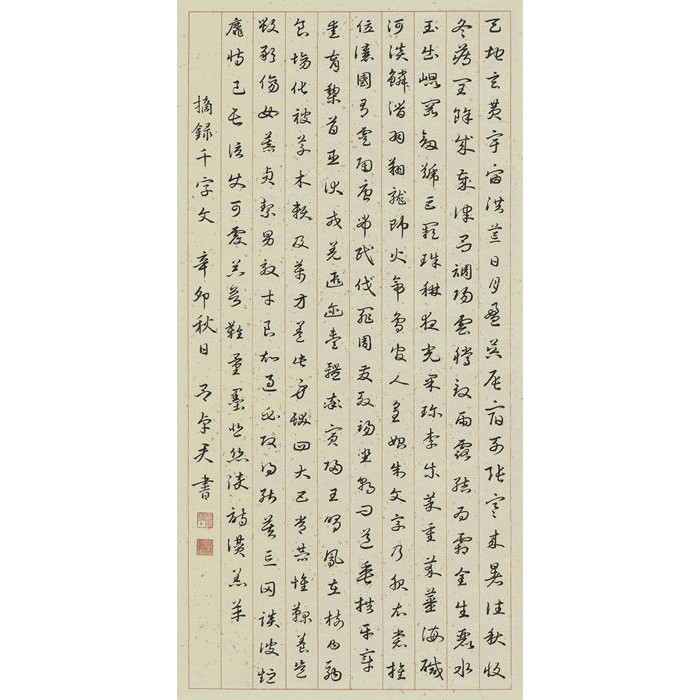 天地玄黃宇宙洪荒日月盈昃辰宿列張寒來暑往秋收
冬藏閏餘成歲律呂調陽雲騰致雨露結為霜金生麗水
玉出崐岡劍號巨闕珠稱夜光果珍李柰菜重芥薑海鹹
河淡鱗潛羽翔龍師火帝鳥官人皇始制文字乃服衣裳推
位讓國有虞陶唐弔民伐罪周發殷湯坐朝問道垂拱平章
愛育黎首臣伏戎羌遐邇壹體率賓歸王鳴鳳在樹白駒
食場化被草木賴及萬方蓋此身髮四大五常恭惟鞠養豈
敢毀傷女慕貞絜男效才良知過必改得能莫忘罔談彼短
靡恃己長信使可覆器欲難量墨悲絲染詩讚羔羊
摘録千字文 辛卯秋日 書